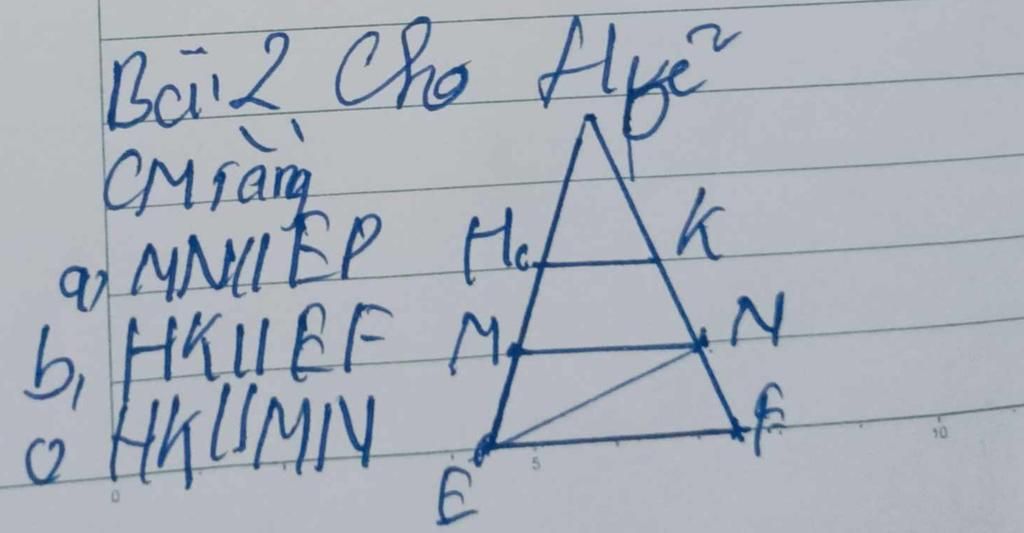 Bài 2 Cho Hvẽ
CM rằng
a, MN // EP
b, HK // EF
c, HK // MN
H
K
M
N
E
F
0
5
10